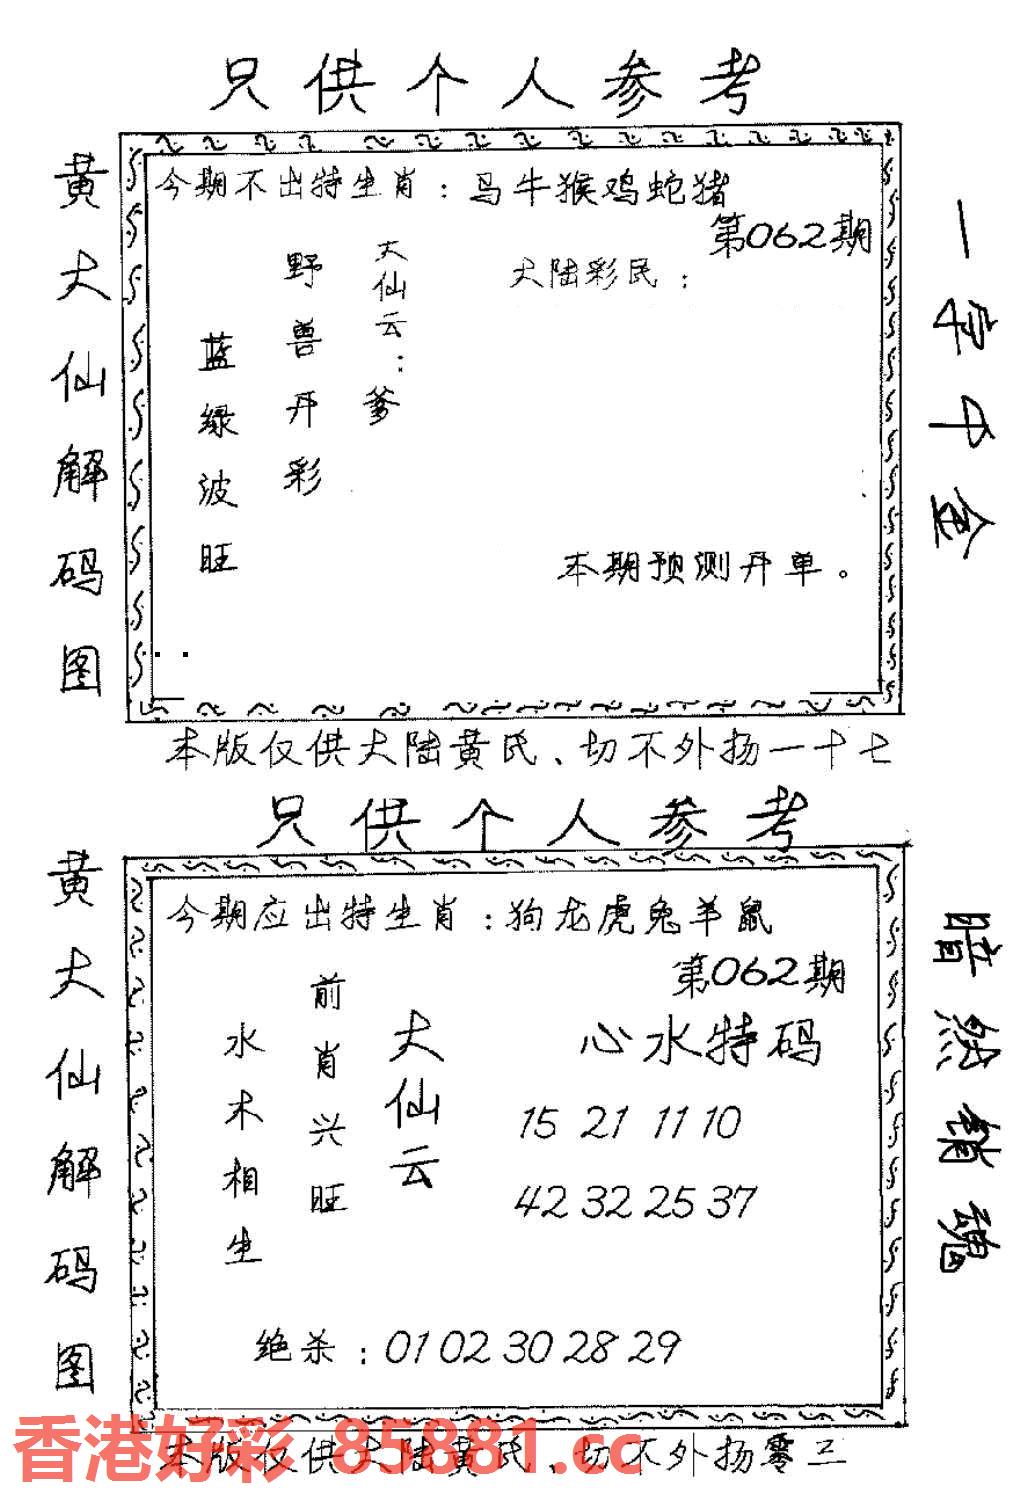 只供个人参考
黄大仙解码图
今期不出特生肖：马牛猴鸡蛇猪
第062期
大陆彩民：
大仙云：爹
野兽开彩
蓝绿波旺
本期预测开单。
一字千金
本版仅供大陆黄氏、切不外扬一十七
只供个人参考
黄大仙解码图
今期应出特生肖：狗龙虎兔羊鼠
第062期
心水特码
15 21 11 10
42 32 25 37
大仙云
前肖兴旺
水木相生
绝杀：01 02 30 28 29
暗然销魂
本版仅供大陆黄氏、切不外扬零三
香港好彩 85881.cc